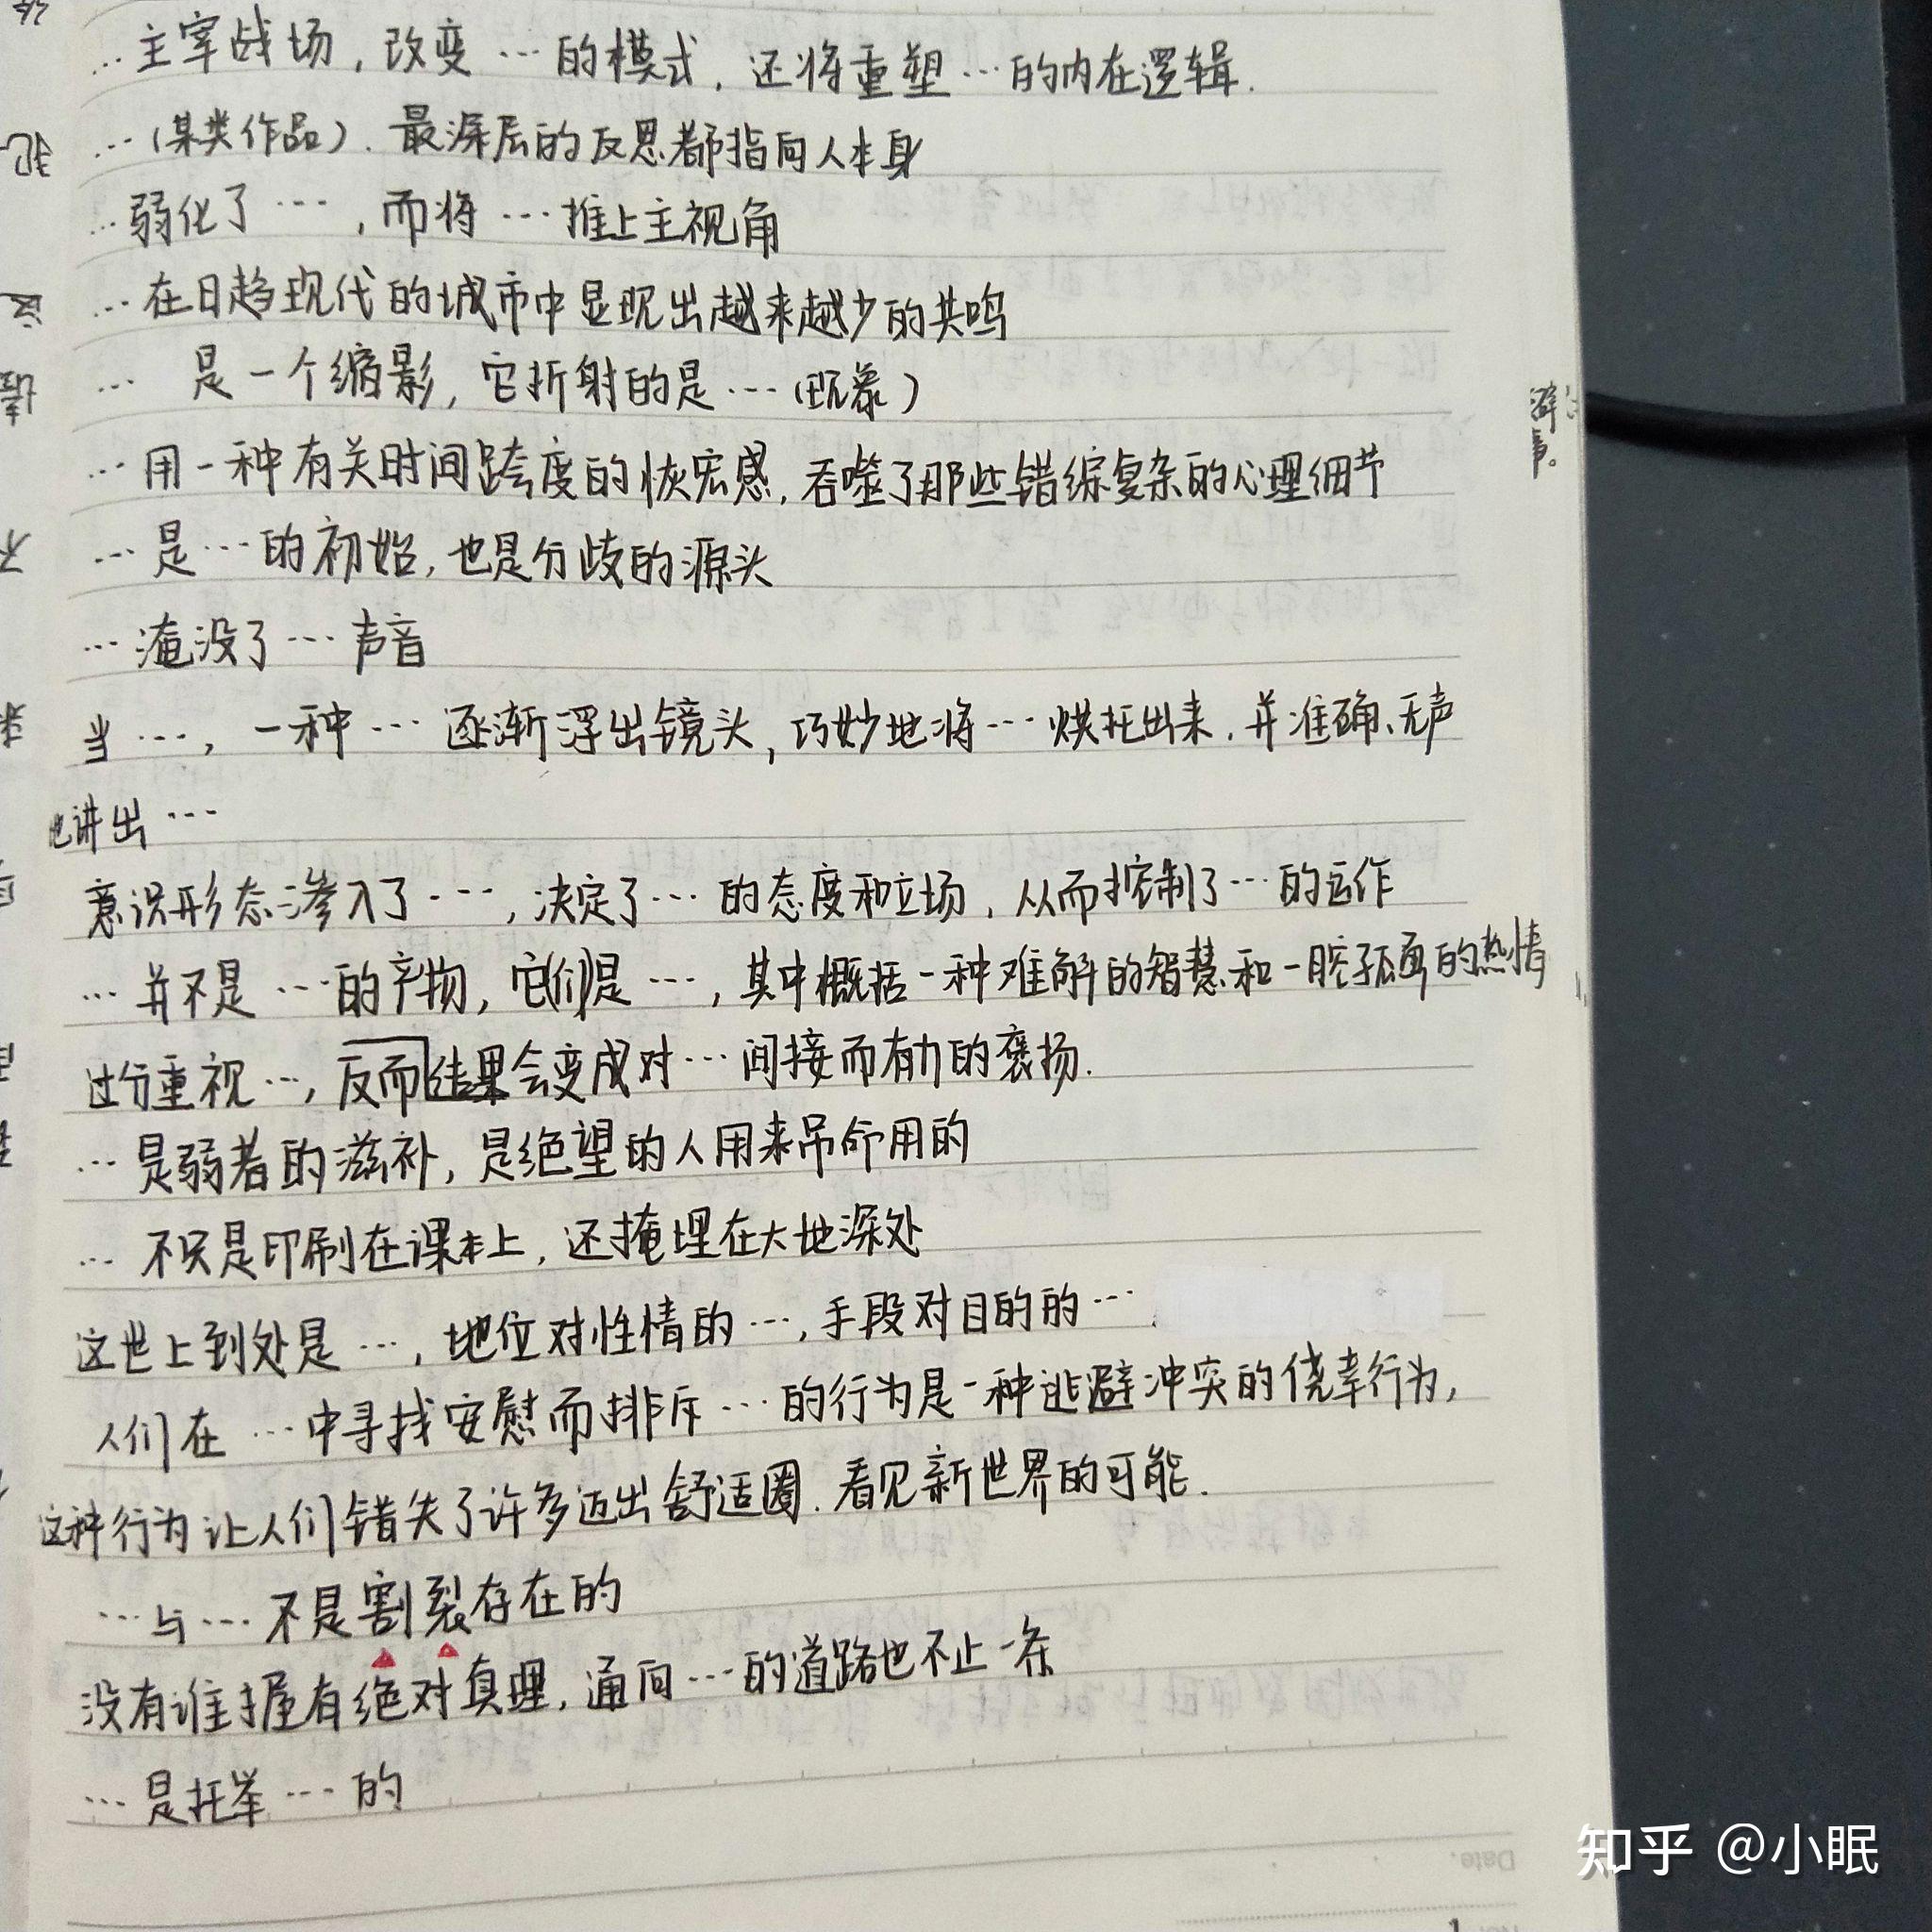 …主宰战场，改变…的模式，还将重塑…的内在逻辑.
…（某类作品）.最深层的反思都指向人本身
…弱化了…，而将…推上主视角
…在日趋现代的城市中显现出越来越少的共鸣
… 是一个缩影，它折射的是…（现象）
…用一种有关时间跨度的恢宏感，吞噬了那些错综复杂的心理细节
…是…的初始，也是分歧的源头
…淹没了…声音
当…，一种…逐渐浮出镜头，巧妙地将…烘托出来.并准确、无声
地讲出…
意识形态渗入了…，决定了…的态度和立场，从而控制了…的运作
…并不是…的产物，它(们)是…，其中概括一种难解的智慧和一腔孤勇的热情
过分重视…，反而结果会变成对…间接而有力的褒扬.
…是弱者的滋补，是绝望的人用来吊命用的
…不只是印刷在课本上，还掩埋在大地深处
这世上到处是…，地位对性情的…，手段对目的的…
人们在…中寻找安慰而排斥…的行为是一种逃避冲突的侥幸行为，
这种行为让人们错失了许多迈出舒适圈.看见新世界的可能.
…与…不是割裂存在的
没有谁握有绝对真理，通向…的道路也不止一条
…是托举…的
Date.
知乎 @小眠